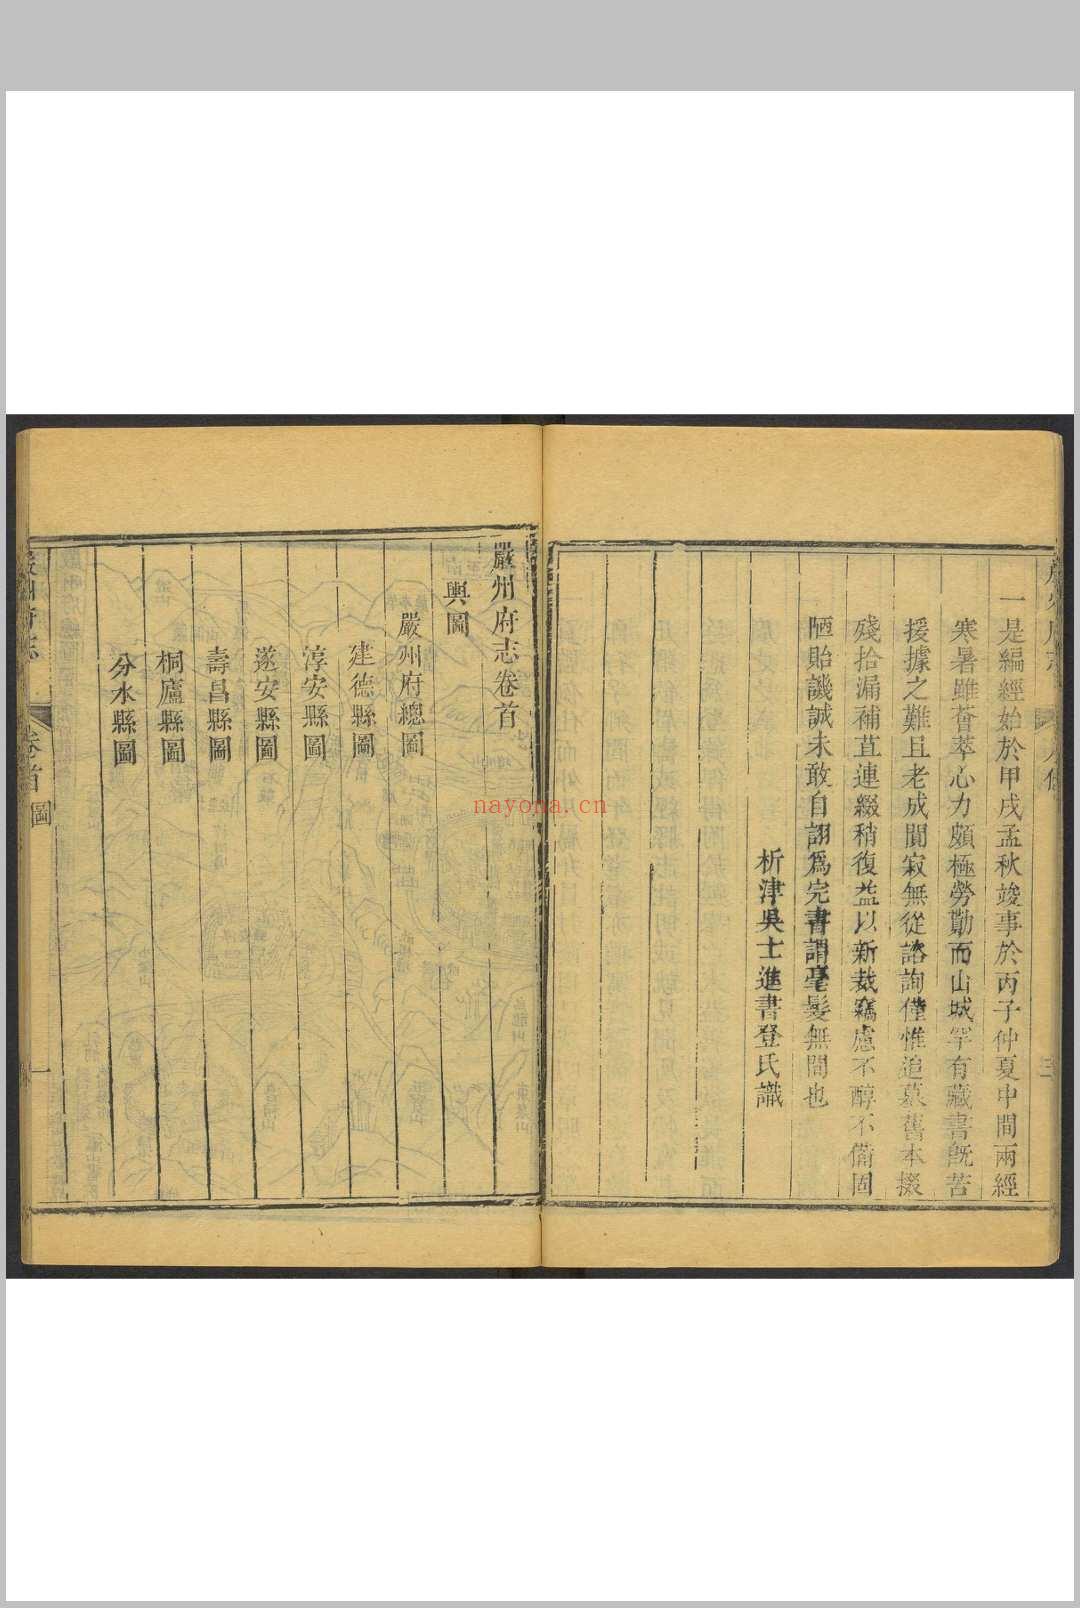 一是編經始於甲戌孟秋竣事於丙子仲夏中間兩經
寒暑雖薈萃心力頗極勞勩而山城罕有藏書旣苦
援據之難且老成閴寂無從諮詢僅惟追慕舊本掇
殘拾漏補苴連綴稍復益以新裁竊慮不醇不備固
陋貽譏誠未敢自詡爲完書謂毫髮無間也
析津吳士進書登氏識
嚴州府志卷首
輿圖
嚴州府總圖
建德縣圖
淳安縣圖
遂安縣圖
壽昌縣圖
桐廬縣圖
分水縣圖
嚴州府志
卷首
圖
一
nayona.cn